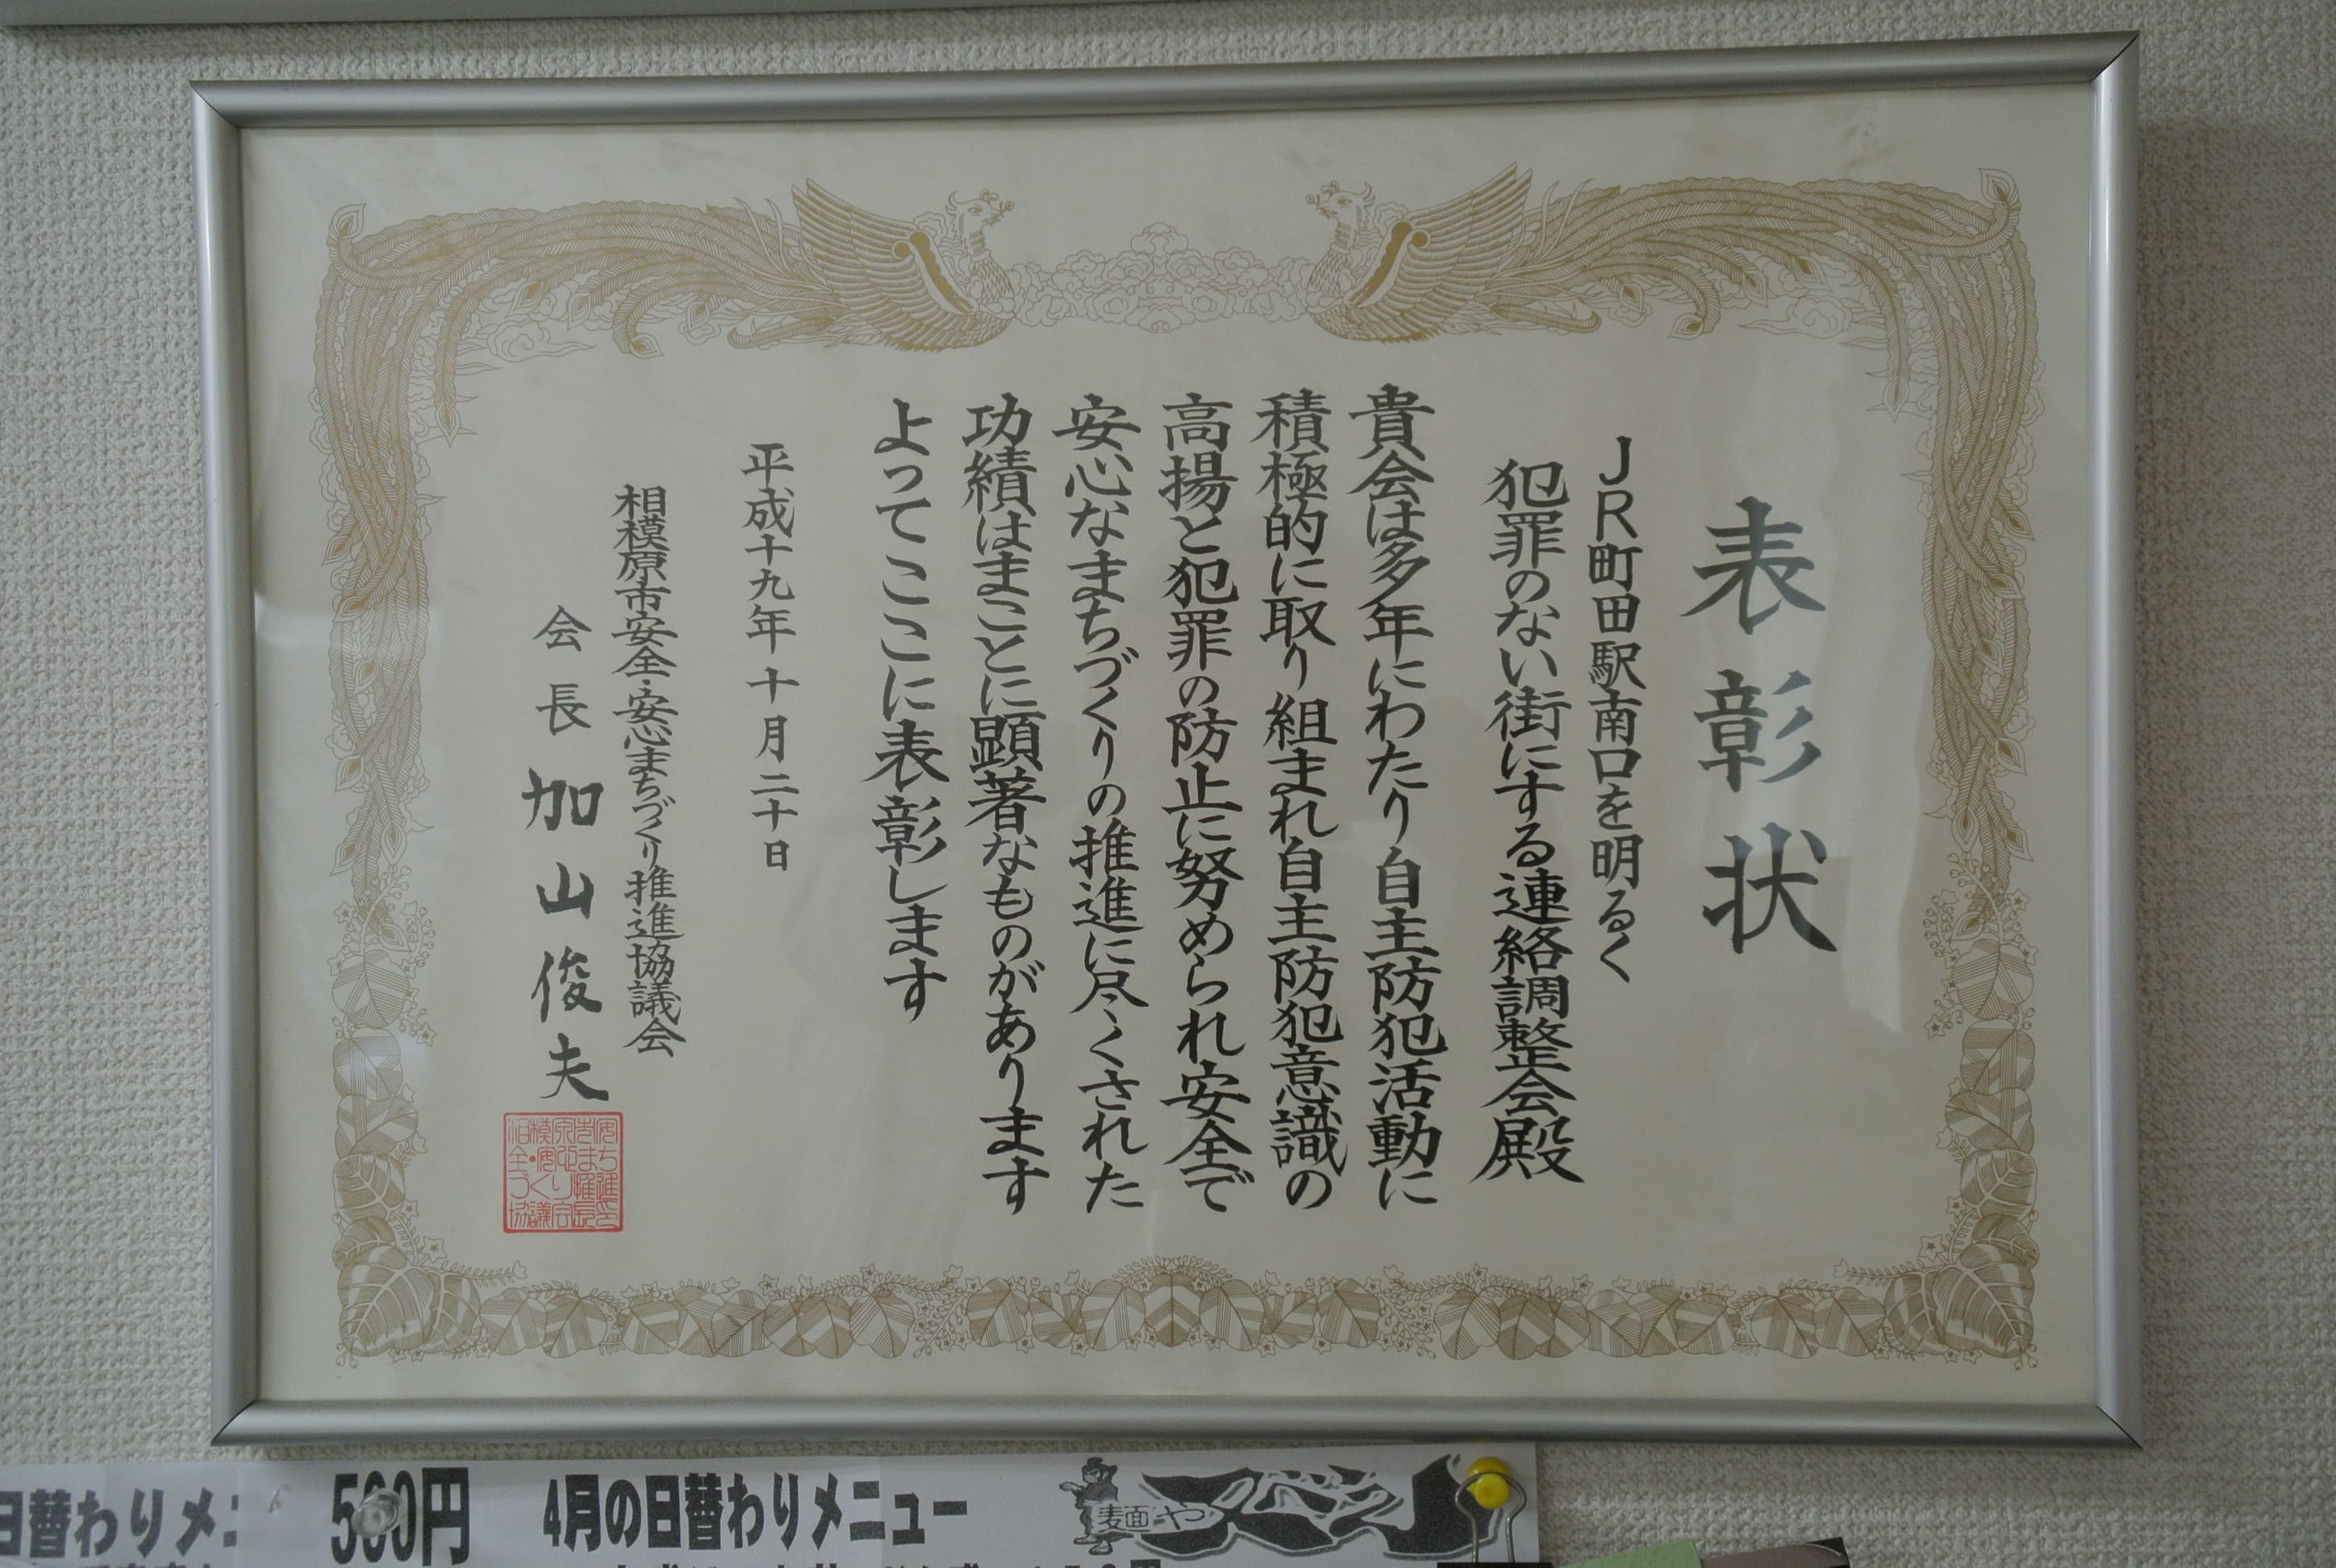 表彰状
JR町田駅南口を明るく
犯罪のない街にする連絡調整会殿
貴会は多年にわたり自主防犯活動に
積極的に取り組まれ自主防犯意識の
高揚と犯罪の防止に努められ安全で
安心なまちづくりの推進に尽くされた
功績はまことに顕著なものがあります
よってここに表彰します
平成十九年十月二十日
相模原市安全・安心まちづくり推進協議会
会長 加山俊夫
日替わりメニ
500円
4月の日替わりメニュー
麺や